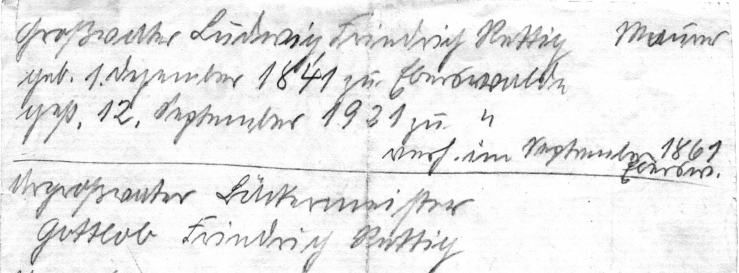 Großvater Ludwig Friedrich Rettig Maurer
geb. 1. Dezember 1841 zu Eberswalde
gest. 12. September 1921 zu "
verh. im September 1861
Ebersw.
Urgroßvater Bäckermeister
Gottlob Friedrich Rettig